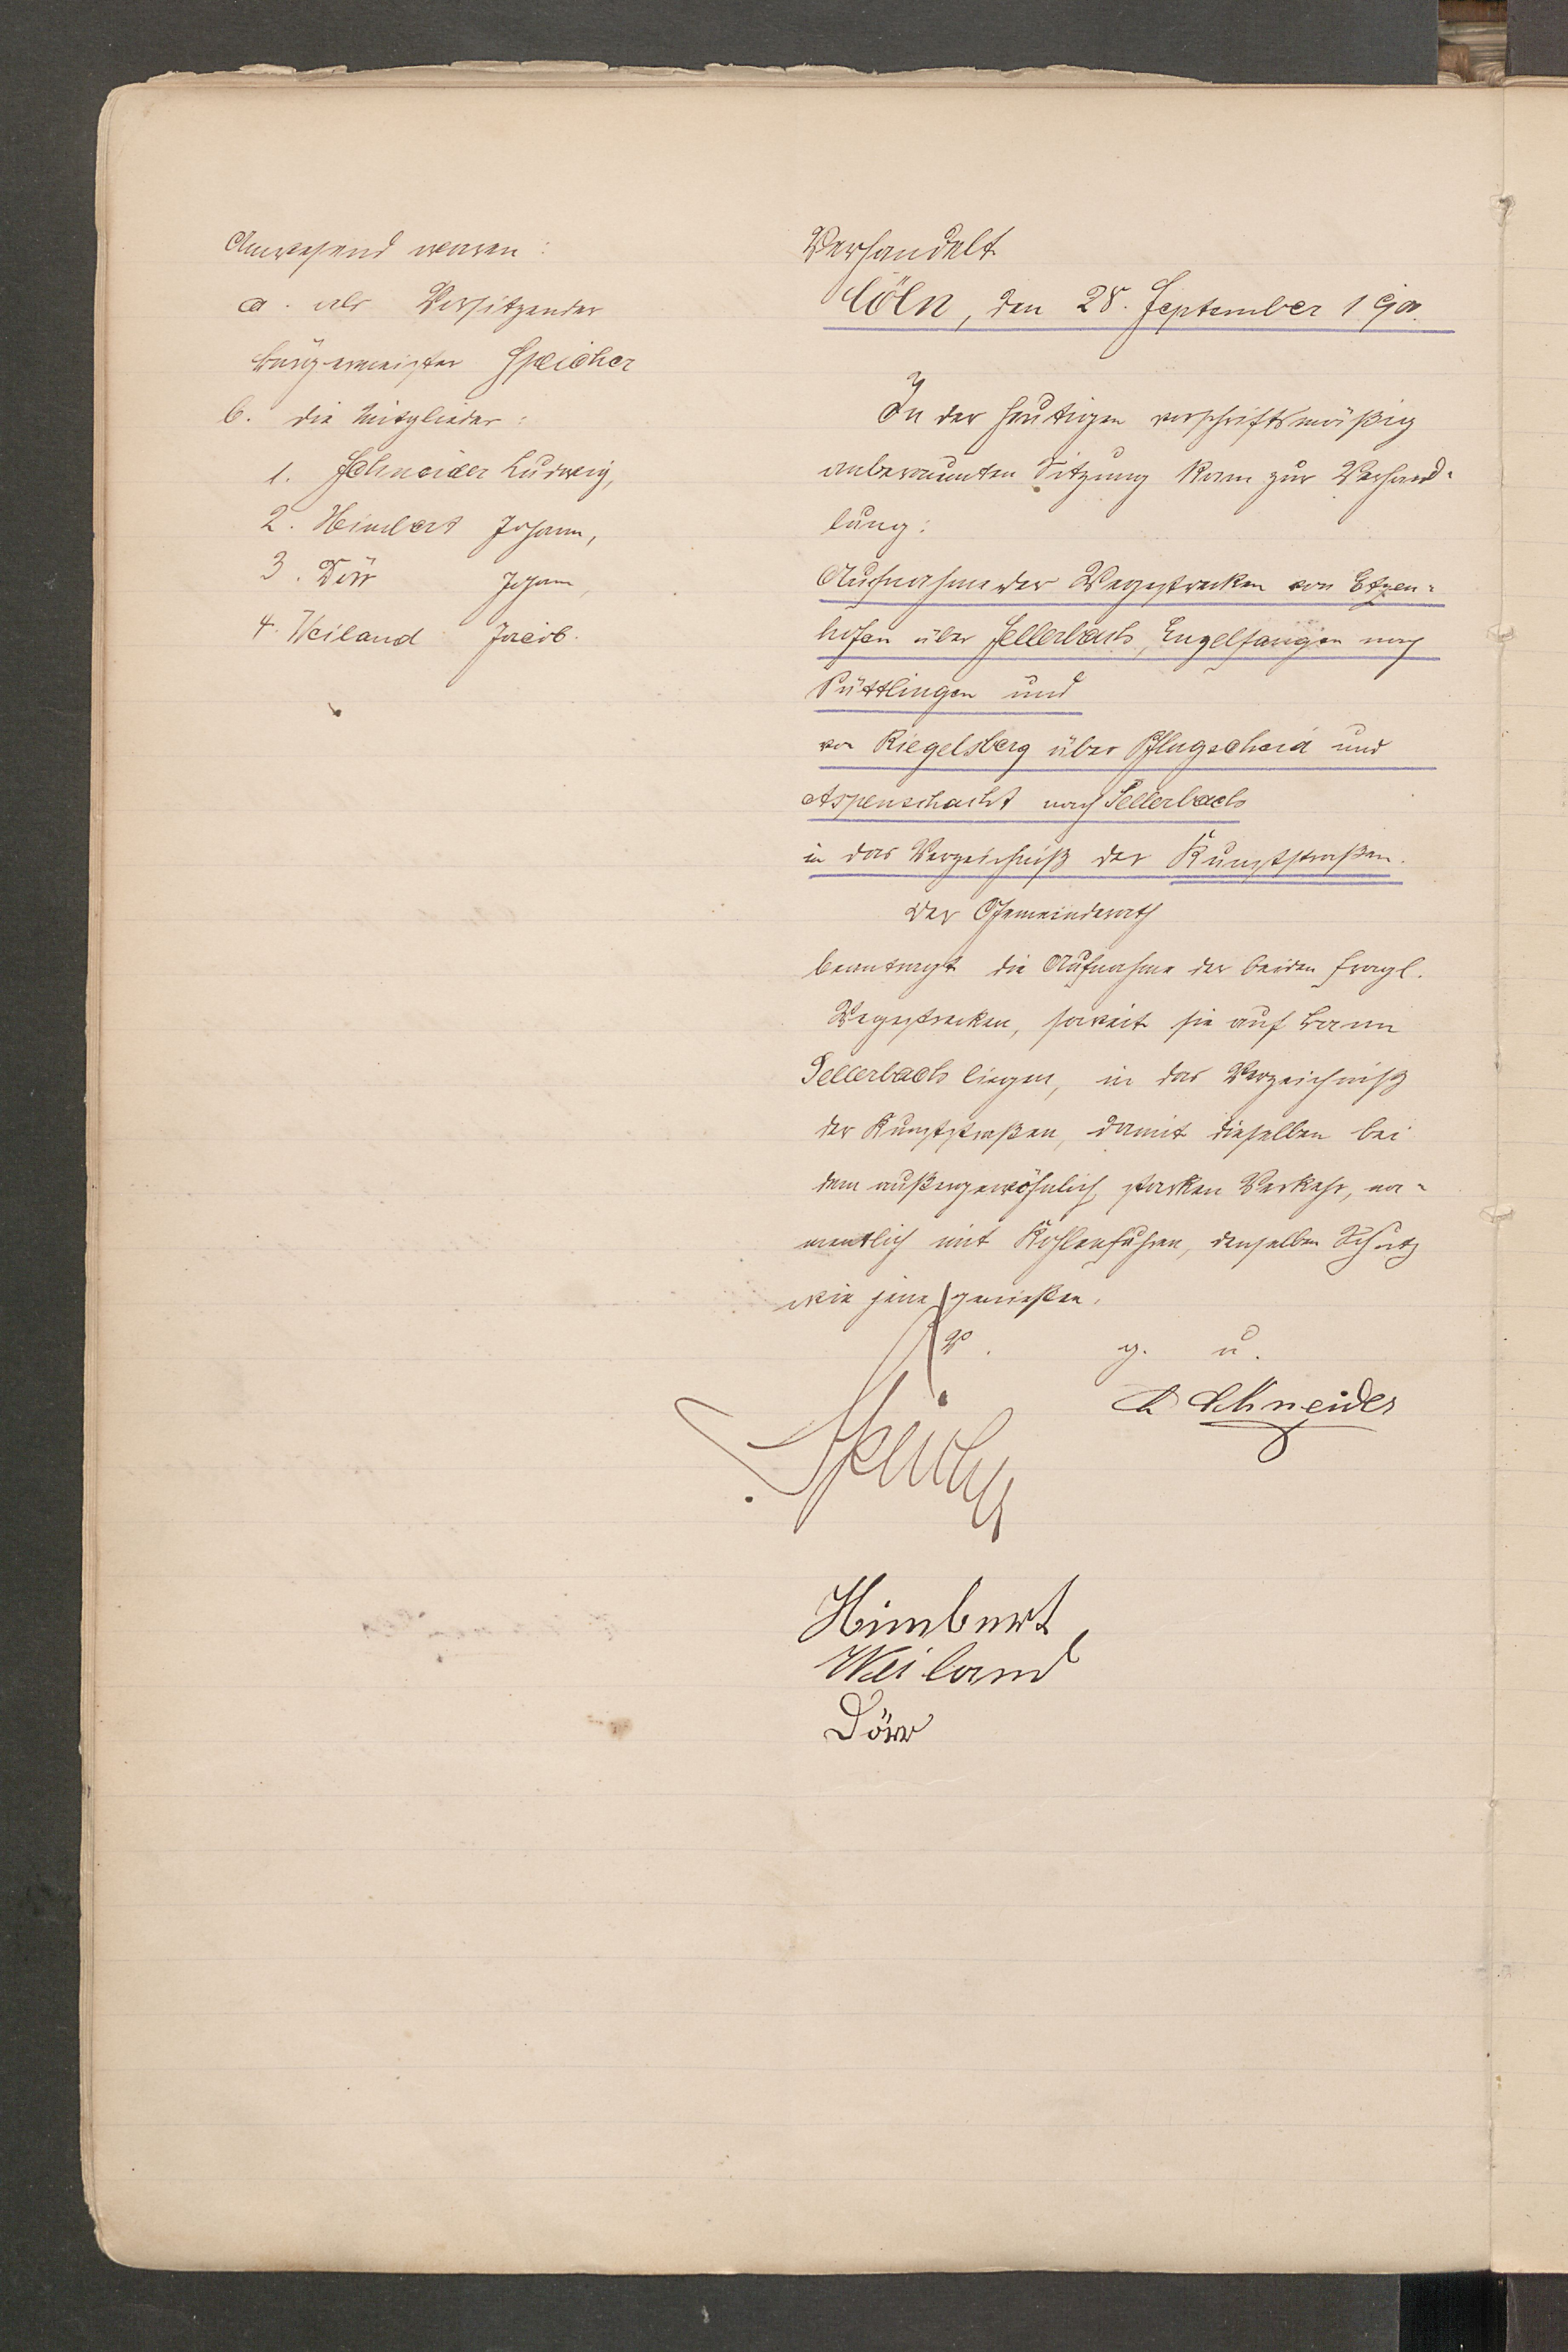 Anwesend waren:
a. als Vorsitzender
Bürgermeister Speicher
b. die Mitglieder:
1. Schneider Ludwig,
2. Himbert Johann,
3. Dörr Johann,
4. Weiland Jacob.
Verhandelt
Cöln, den 28. September
In der heutigen vorschriftsmäßig
anberaumten Sitzung kam zur Verhand-
lung:
Aufnahme der Wegestrecken von Etzen-
hofen über Sellerbach, Engelfangen nach
Püttlingen und
von Riegelsberg über Pflugscheid und
Aspenschacht nach Sellerbach
in das Verzeichniß der Kunststraßen.
Der Gemeinderath
beantragt die Aufnahme der beiden fragl.
Wegestrecken, soweit sie auf Bann
Sellerbach liegen, in das Verzeichniß
der Kunststraßen, damit dieselben bei
dem außergewöhnlich starken Verkehr, na-
mentlich mit Kohlenfuhren, denselben Schutz
wie jene genießen.
V. g. u.
L Schneider
Speicher
Himbert
Weiland
Dörr